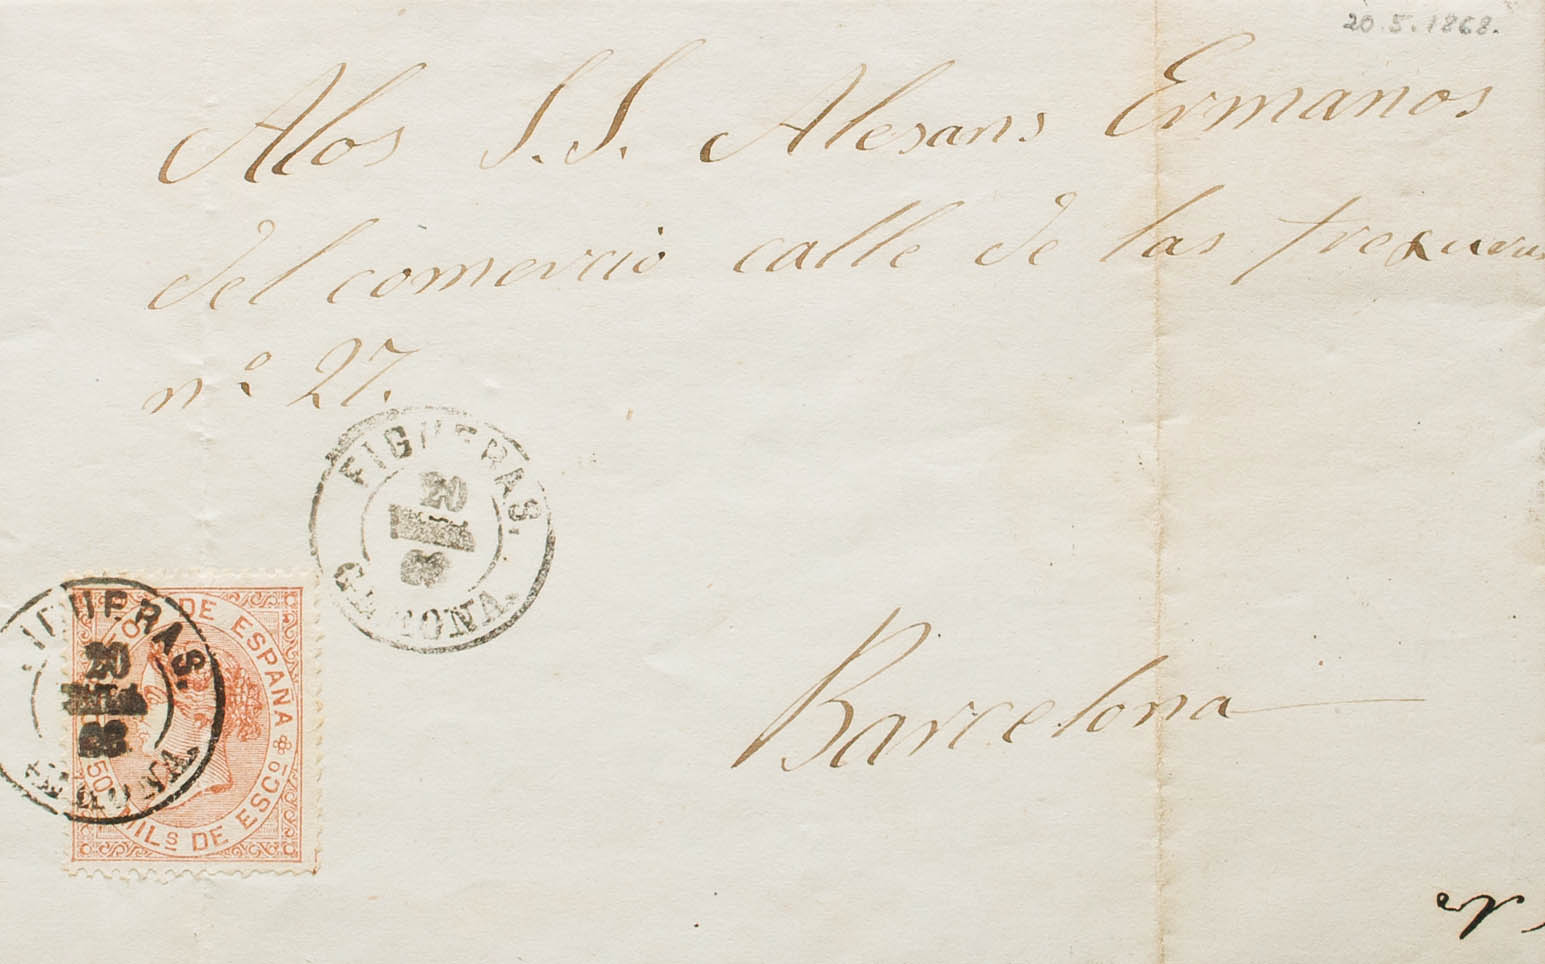 20.5.1868.
Alos S.S. Alesans Ermanos
del comercio calle de las
nº 27.
FIGUERAS.
20
68
GERONA.
FIGUERAS.
20
68
GERONA.
DE ESPAÑA
50 MILS DE ESCO
Barcelona